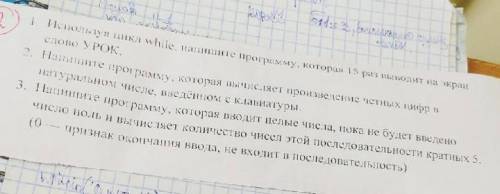 1. Используя цикл while, напишите программу, которая 15 раз выводит на экран
слово УРОК.
2. Напишите программу, которая вычисляет произведение четных цифр в
натуральном числе, введённом с клавиатуры.
3. Напишите программу, которая вводит целые числа, пока не будет введено
число ноль и вычисляет количество чисел этой последовательности кратных 5.
(0 — признак окончания ввода, не входит в последовательность)